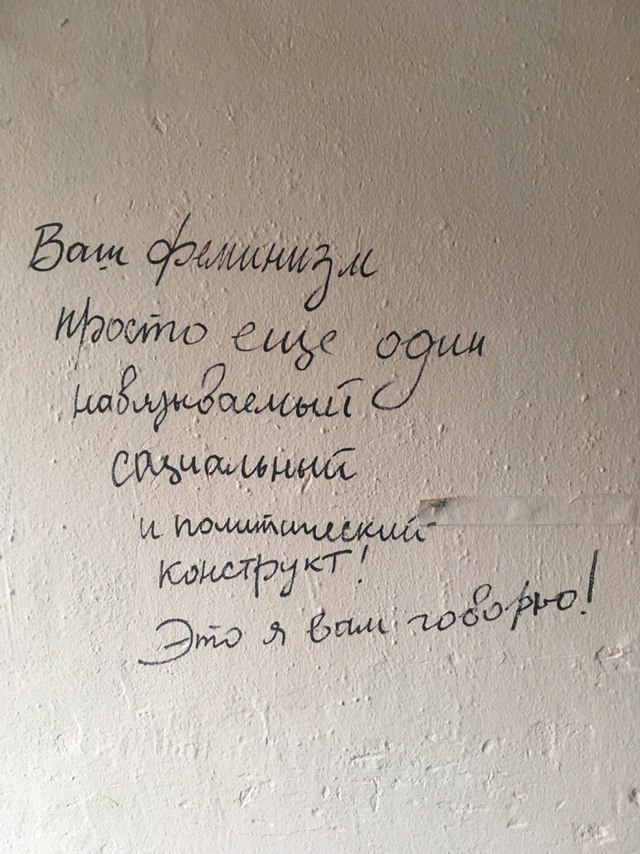 Ваш феминизм
просто еще один
навязываемый
социальный
и политический
конструкт!
Это я вам говорю!